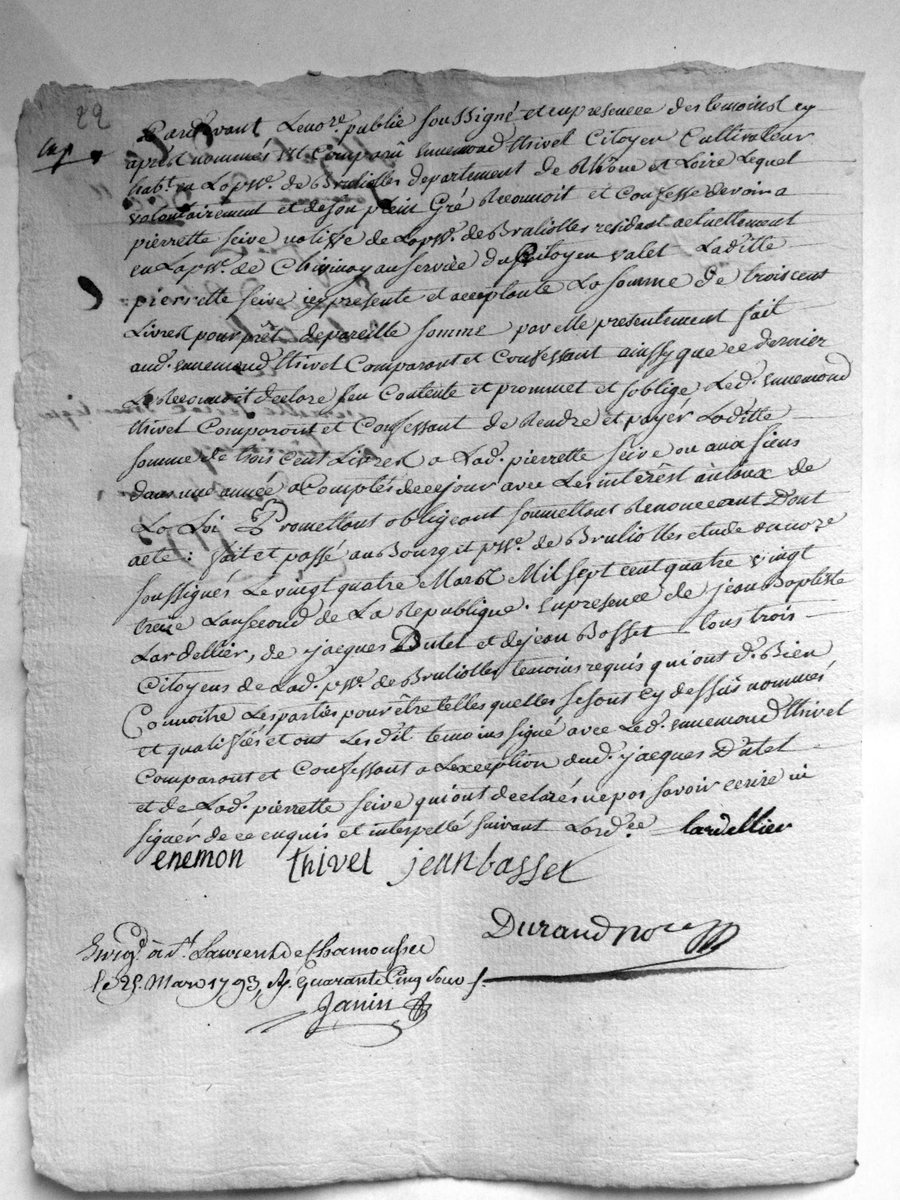 22
Exp.
Pardevant Le nore. public soussigné et en presence des temoins cy
après nommés Est Comparû ennemond thivel Citoyen Cultivateur
habt. en La psse. de Brulioles departement de Rhône et Loire Lequel
volontairement et de son plein Gré Reconnoit et Confesse devoir a
pierrette seive native de La psse. de Brulioles residant actuellement
en La psse. de au service du Citoyen valet Laditte
pierrette seive icy presente et acceptante La somme de trois cent
Livres pour prêt de pareille somme par elle presentement fait
aud. ennemond thivel Comparant et Confessant ainsy que ce dernier
Le Reconnoit declare s'en Contente et prommet et s'oblige Led. ennemond
thivel Comparant et Confessant de Rendre et payer Laditte
somme de trois cent Livres a Lad. pierrette seive ou aux siens
dans une année a Comptés de ce jour avec Les interêst au taux de
La Loi Promettant obligeant soumettant Renonceant Dont
acte : fait et passé au Bourg et psse. de Brulioles etude du nore
soussignés Le vingt quatre Mars Mil sept cent quatre vingt
treize L'an second de La Republique. en presence de jean Baptiste
Lardellier, de jacques Dutel et de jean Basset tous trois
Citoyens de Lad. psse. de Brulioles temoins requis qui ont dt. Bien
Connoitre Les parties pour être telles quelles se sont Cy dessus nommés
et qualifiés et ont Lesdit temoins signé avec Led. ennemond thivel
Comparant et Confessant a L'exception dud. jacques Dutel
et de Lad. pierrette seive qui ont declarés ne pas savoir ecrire ni
signer de ce enquis et interpellé suivant L'ordce. Lardellier
enemon thivel jean basset
Durand nore
Enrigé. à St. Laurent de Chamousset
le 25. Mars 1793, R. quarante Cinq sous
Janin